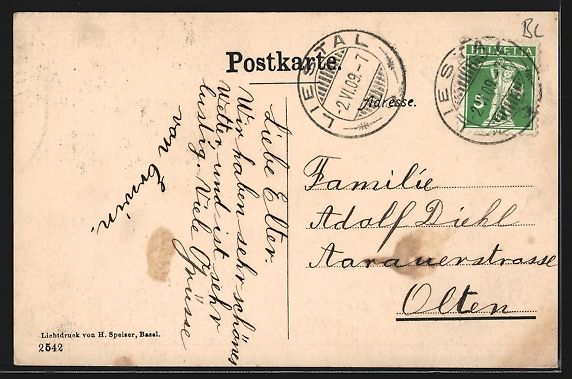 BL
Postkarte.
LIESTAL
-2.VI.09.-7
HELVETIA
5
LIESTAL
Adresse.
Liebe Elter.
Wir haben sehr schönes
Wetter und ist sehr
lustig. Viele Grüsse
von Erwin.
Familie
Adolf Diehl
Aarauerstrasse
Olten
Lichtdruck von H. Speiser, Basel.
2542